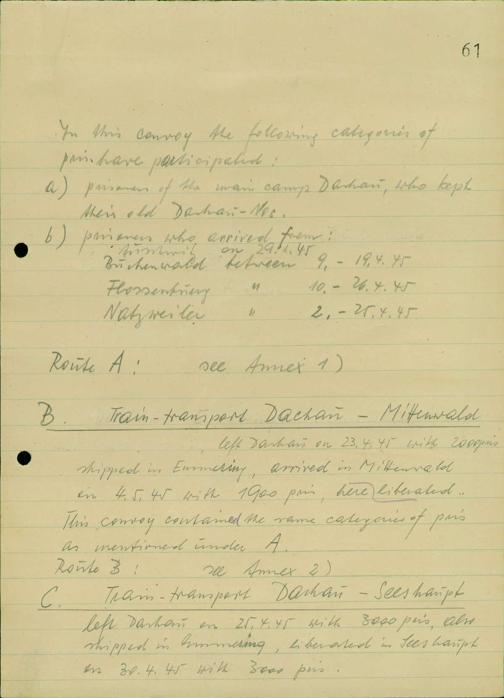 61
In this convoy the following categories of
pris. have participated:
a) prisoners of the main camp Dachau, who kept
their old Dachau-Nos.
b) prisoners who arrived from:
Auschwitz on 29.1.45
Buchenwald between 9. - 19.4.45
Flossenbürg " 10. - 26.4.45
Natzweiler " 2. - 25.4.45
Route A: see Annex 1)
B. Train-transport Dachau - Mittenwald
left Dachau on 23.4.45 with 2000 pris
shipped in Emmering, arrived in Mittenwald
on 4.5.45 with 1900 pris, here liberated.
This convoy contained the same categories of pris
as mentioned under A.
Route B: see Annex 2)
C. Train-transport Dachau - Seeshaupt
left Dachau on 25.4.45 with 3000 pris, also
shipped in Emmering, liberated in Seeshaupt
on 30.4.45 with 3000 pris.